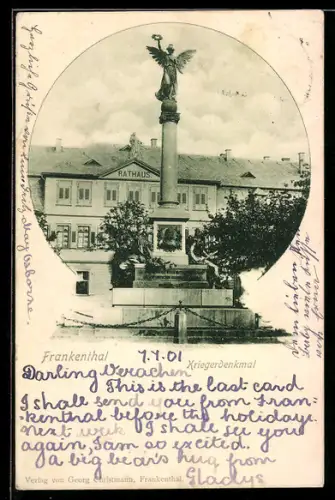 RATHAUS
Frankenthal
7.4.01
Kriegerdenkmal
Darling Verachen
This is the last card
I shall send you from Fran-
kenthal before the holidays.
next week I shall see you
again, I am so excited.
A big bear's hug from
Gladys
Verlag von Georg Christmann, Frankenthal.
Herzliche Grüsse von
May Osborne.